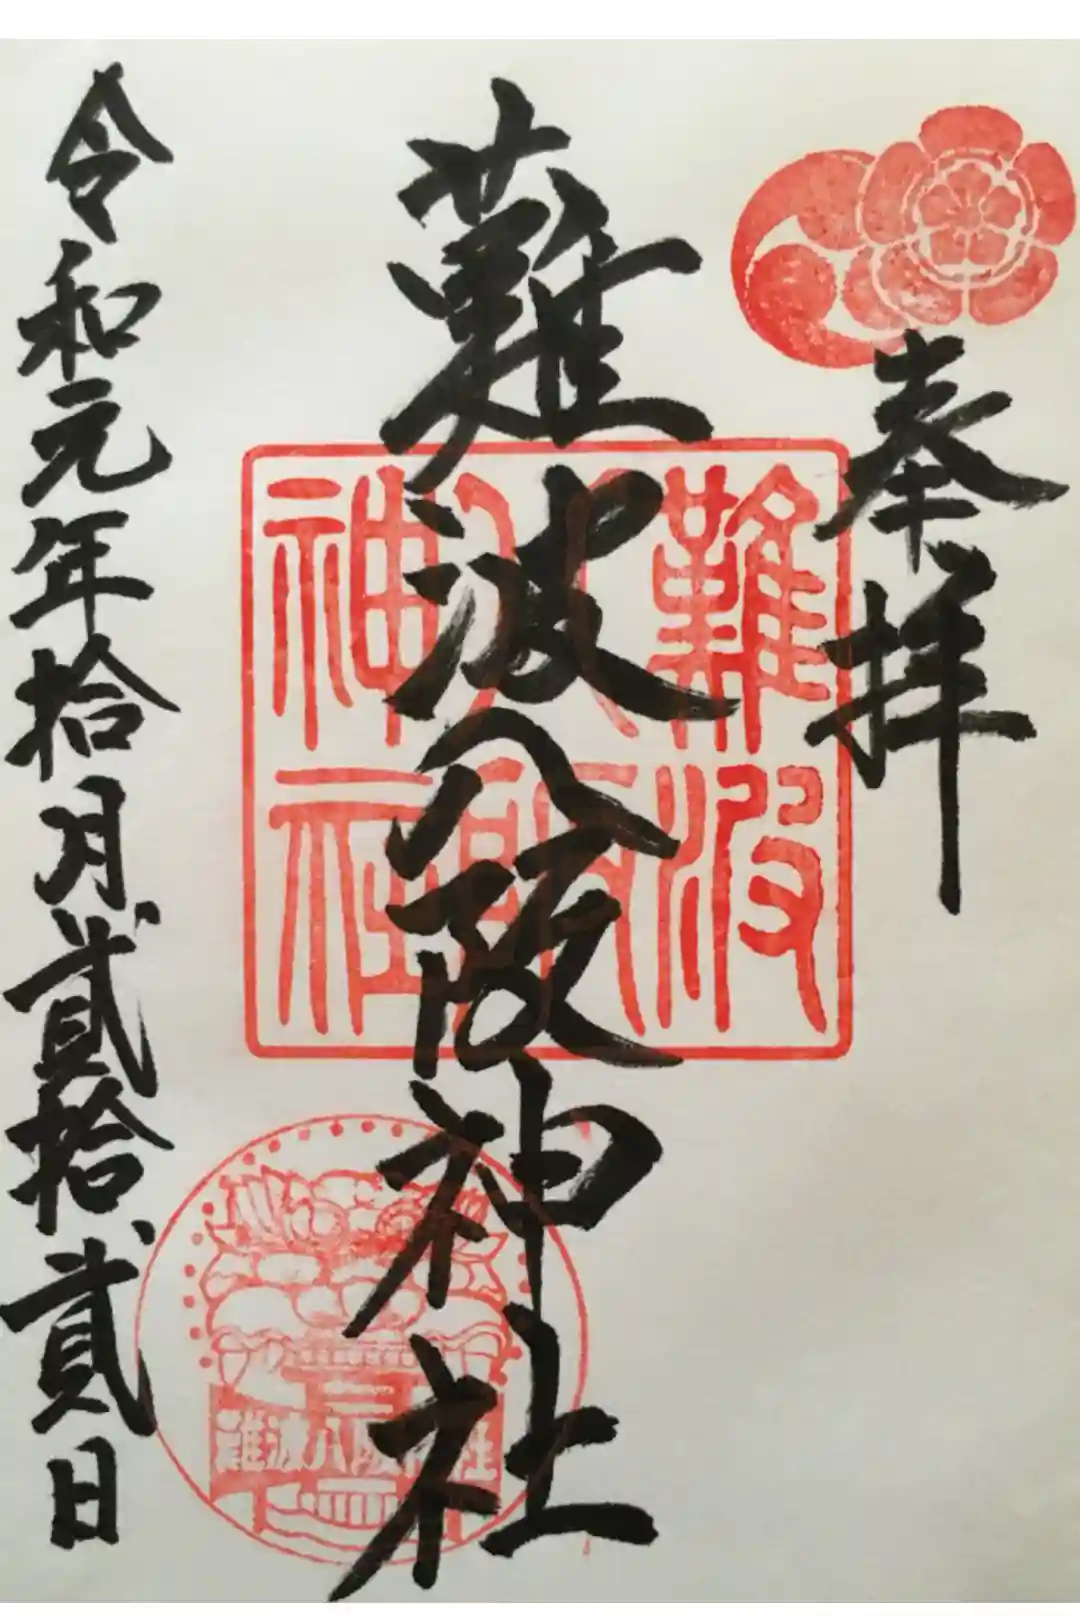 奉拝
難波八阪神社
令和元年拾月貳拾貳日
難波
八阪
神社
難波八阪神社